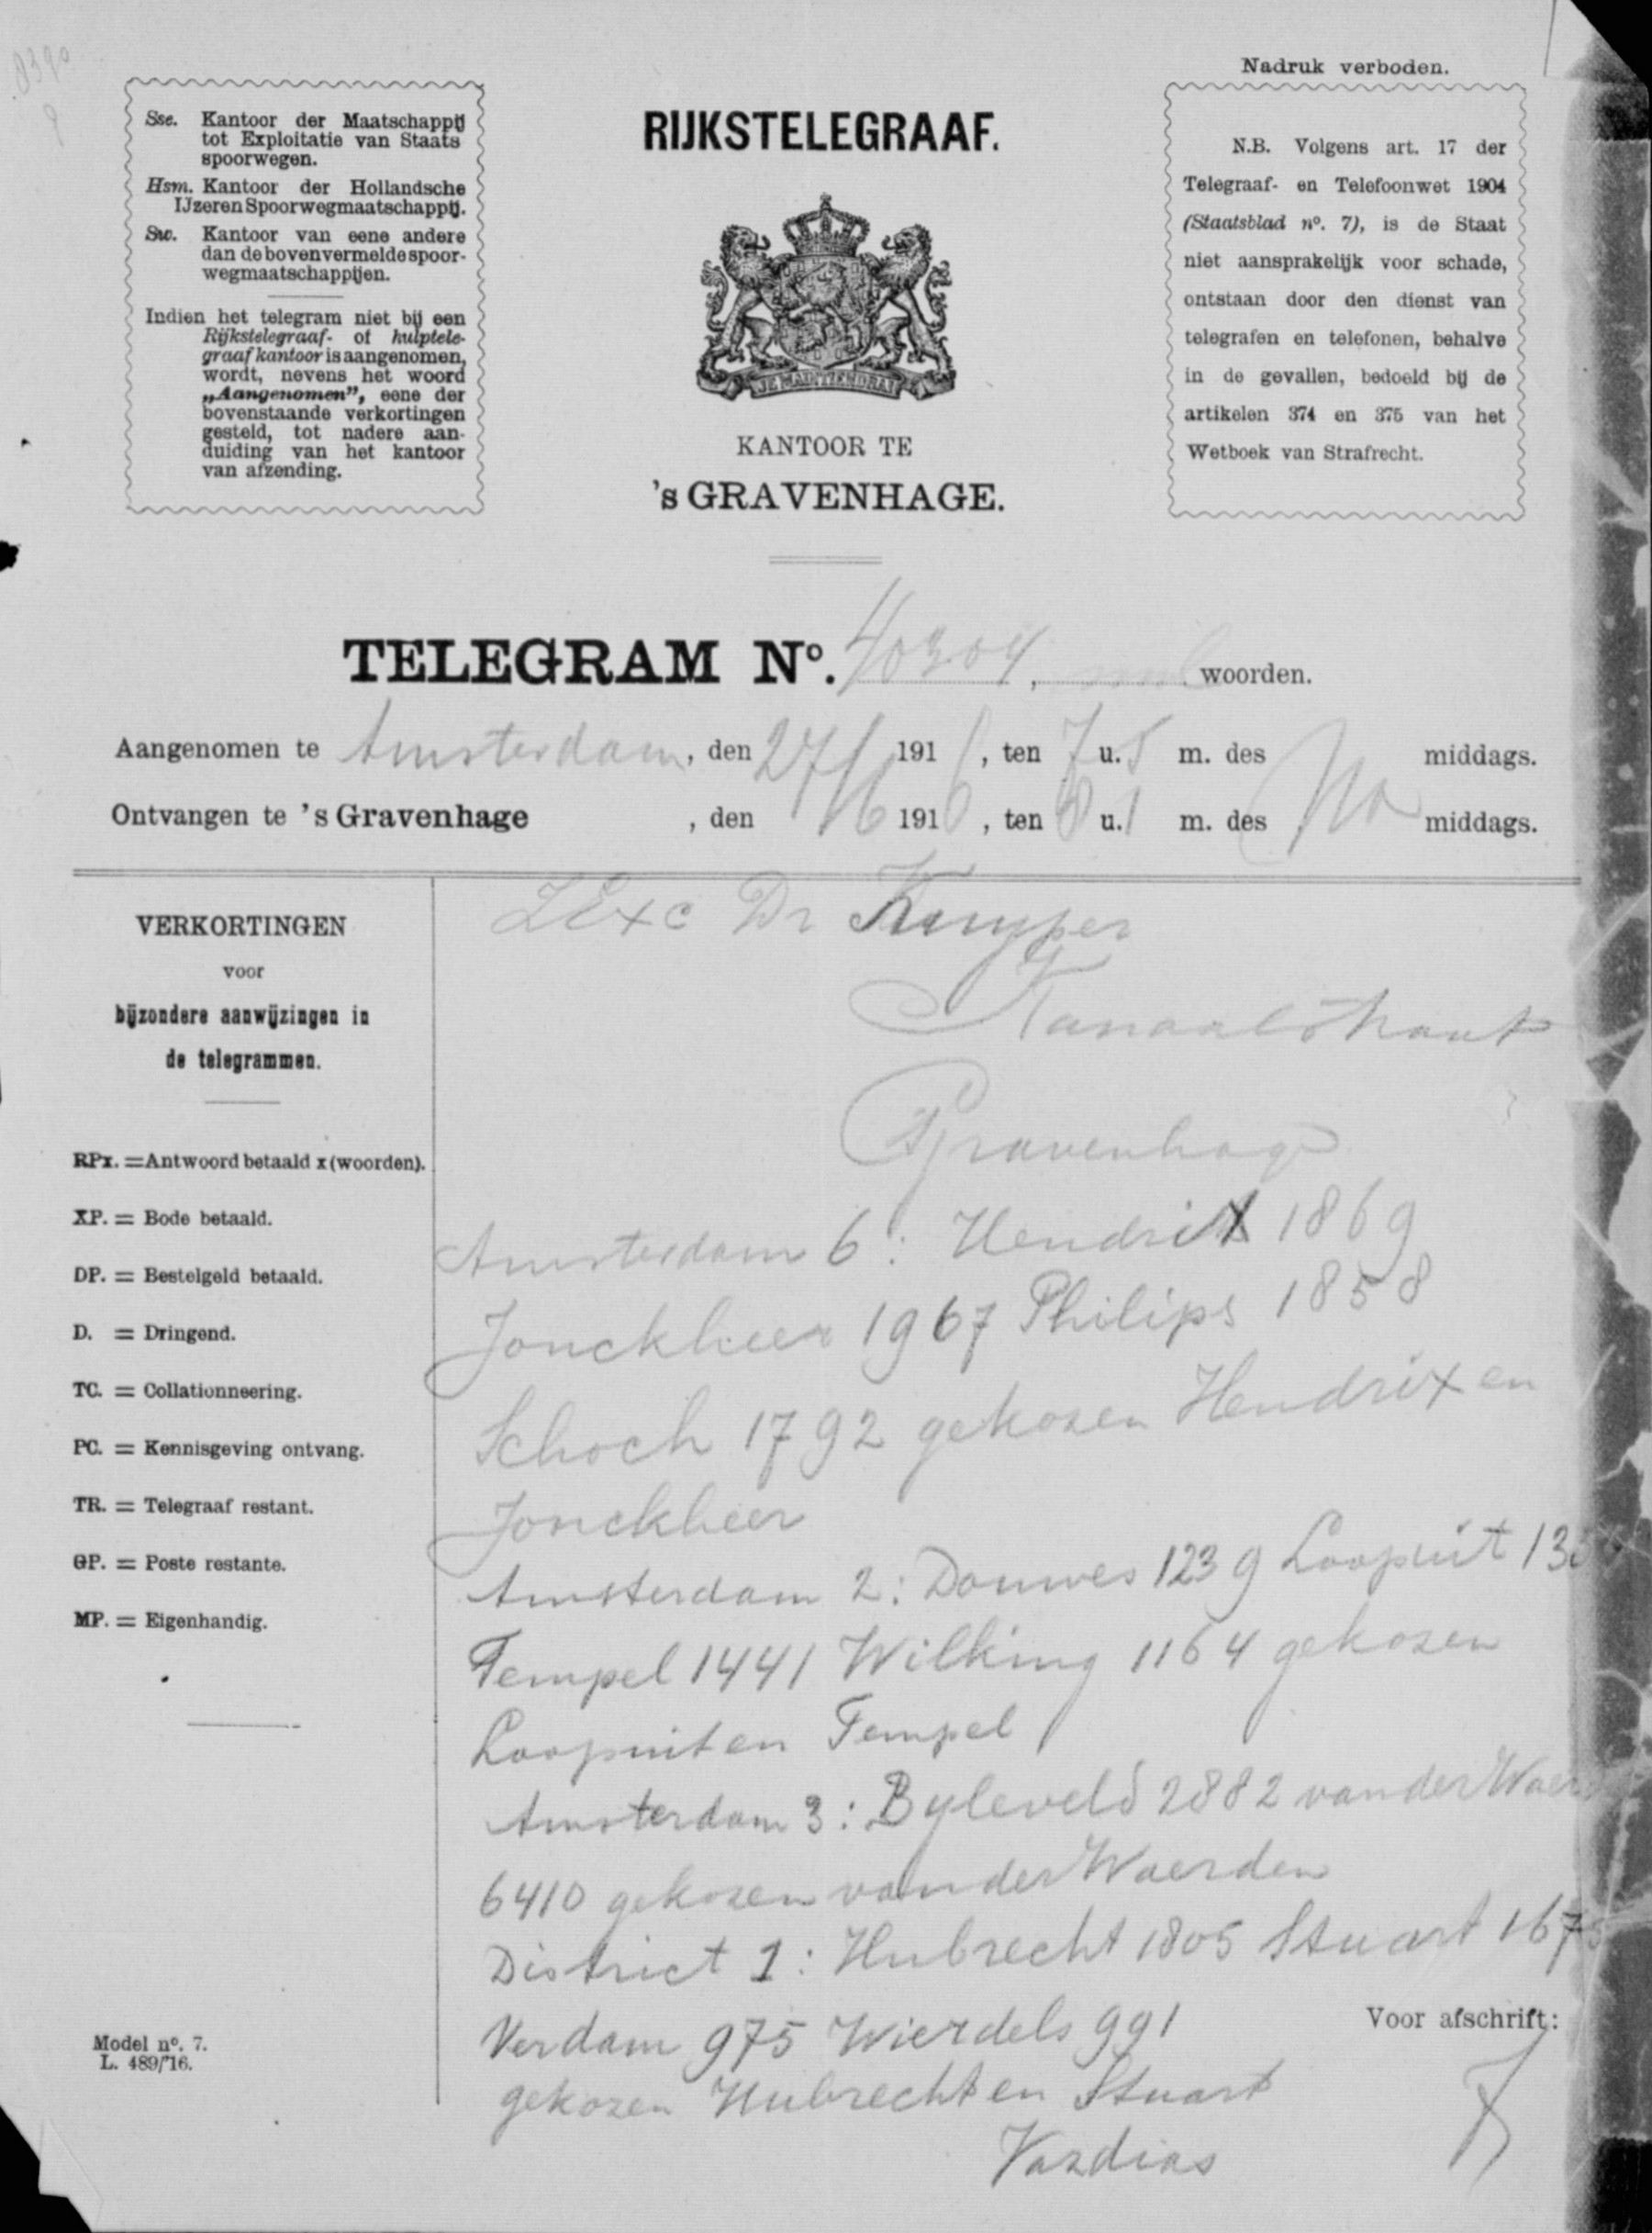 8390
Nadruk verboden.
Sse. Kantoor der Maatschappij
tot Exploitatie van Staats
spoorwegen.
Hsm. Kantoor der Hollandsche
IJzeren Spoorwegmaatschappij.
Sw. Kantoor van eene andere
dan de bovenvermelde spoor-
wegmaatschappijen.
Indien het telegram niet bij een
Rijkstelegraaf- of hulptele-
graafkantoor is aangenomen,
wordt, nevens het woord
„Aangenomen”, eene der
bovenstaande verkortingen
gesteld, tot nadere aan-
duiding van het kantoor
van afzending.
RIJKSTELEGRAAF.
JE MAINTIENDRAI
KANTOOR TE
's GRAVENHAGE.
N.B. Volgens art. 17 der
Telegraaf- en Telefoonwet 1904
(Staatsblad no. 7), is de Staat
niet aansprakelijk voor schade,
ontstaan door den dienst van
telegrafen en telefonen, behalve
in de gevallen, bedoeld bij de
artikelen 374 en 375 van het
Wetboek van Strafrecht.
TELEGRAM No. 40304, woorden.
Aangenomen te Amsterdam, den 27/6 1916, ten 7 u. 5 m. des middags.
Ontvangen te 's Gravenhage, den 1916, ten 8 u. 1 m. des Na middags.
VERKORTINGEN
voor
bijzondere aanwijzingen in
de telegrammen.
RPx. = Antwoord betaald x (woorden).
XP. = Bode betaald.
DP. = Bestelgeld betaald.
D. = Dringend.
TC. = Collationneering.
PC. = Kennisgeving ontvang.
TR. = Telegraaf restant.
GP. = Poste restante.
MP. = Eigenhandig.
Model no. 7.
L. 489/'16.
ZExc Dr Kuyper
Kanaalstraat
Gravenhage
Amsterdam 6: Hendrix 1869
Jonckheer 1967 Philips 1858
Schoch 1792 gekozen Hendrix en
Jonckheer
Amsterdam 2: Douwes 1239 Loopuit
Tempel 1441 Wilking 1164 gekozen
Loopuit en Tempel
Amsterdam 3: Byleveld 2882 van der
6410 gekozen van der Waerden
District 1: Hubrecht 1805 Stuart
Verdam 975 Wierdels 991
gekozen Hubrecht en Stuart
Vazdias
Voor afschrift: